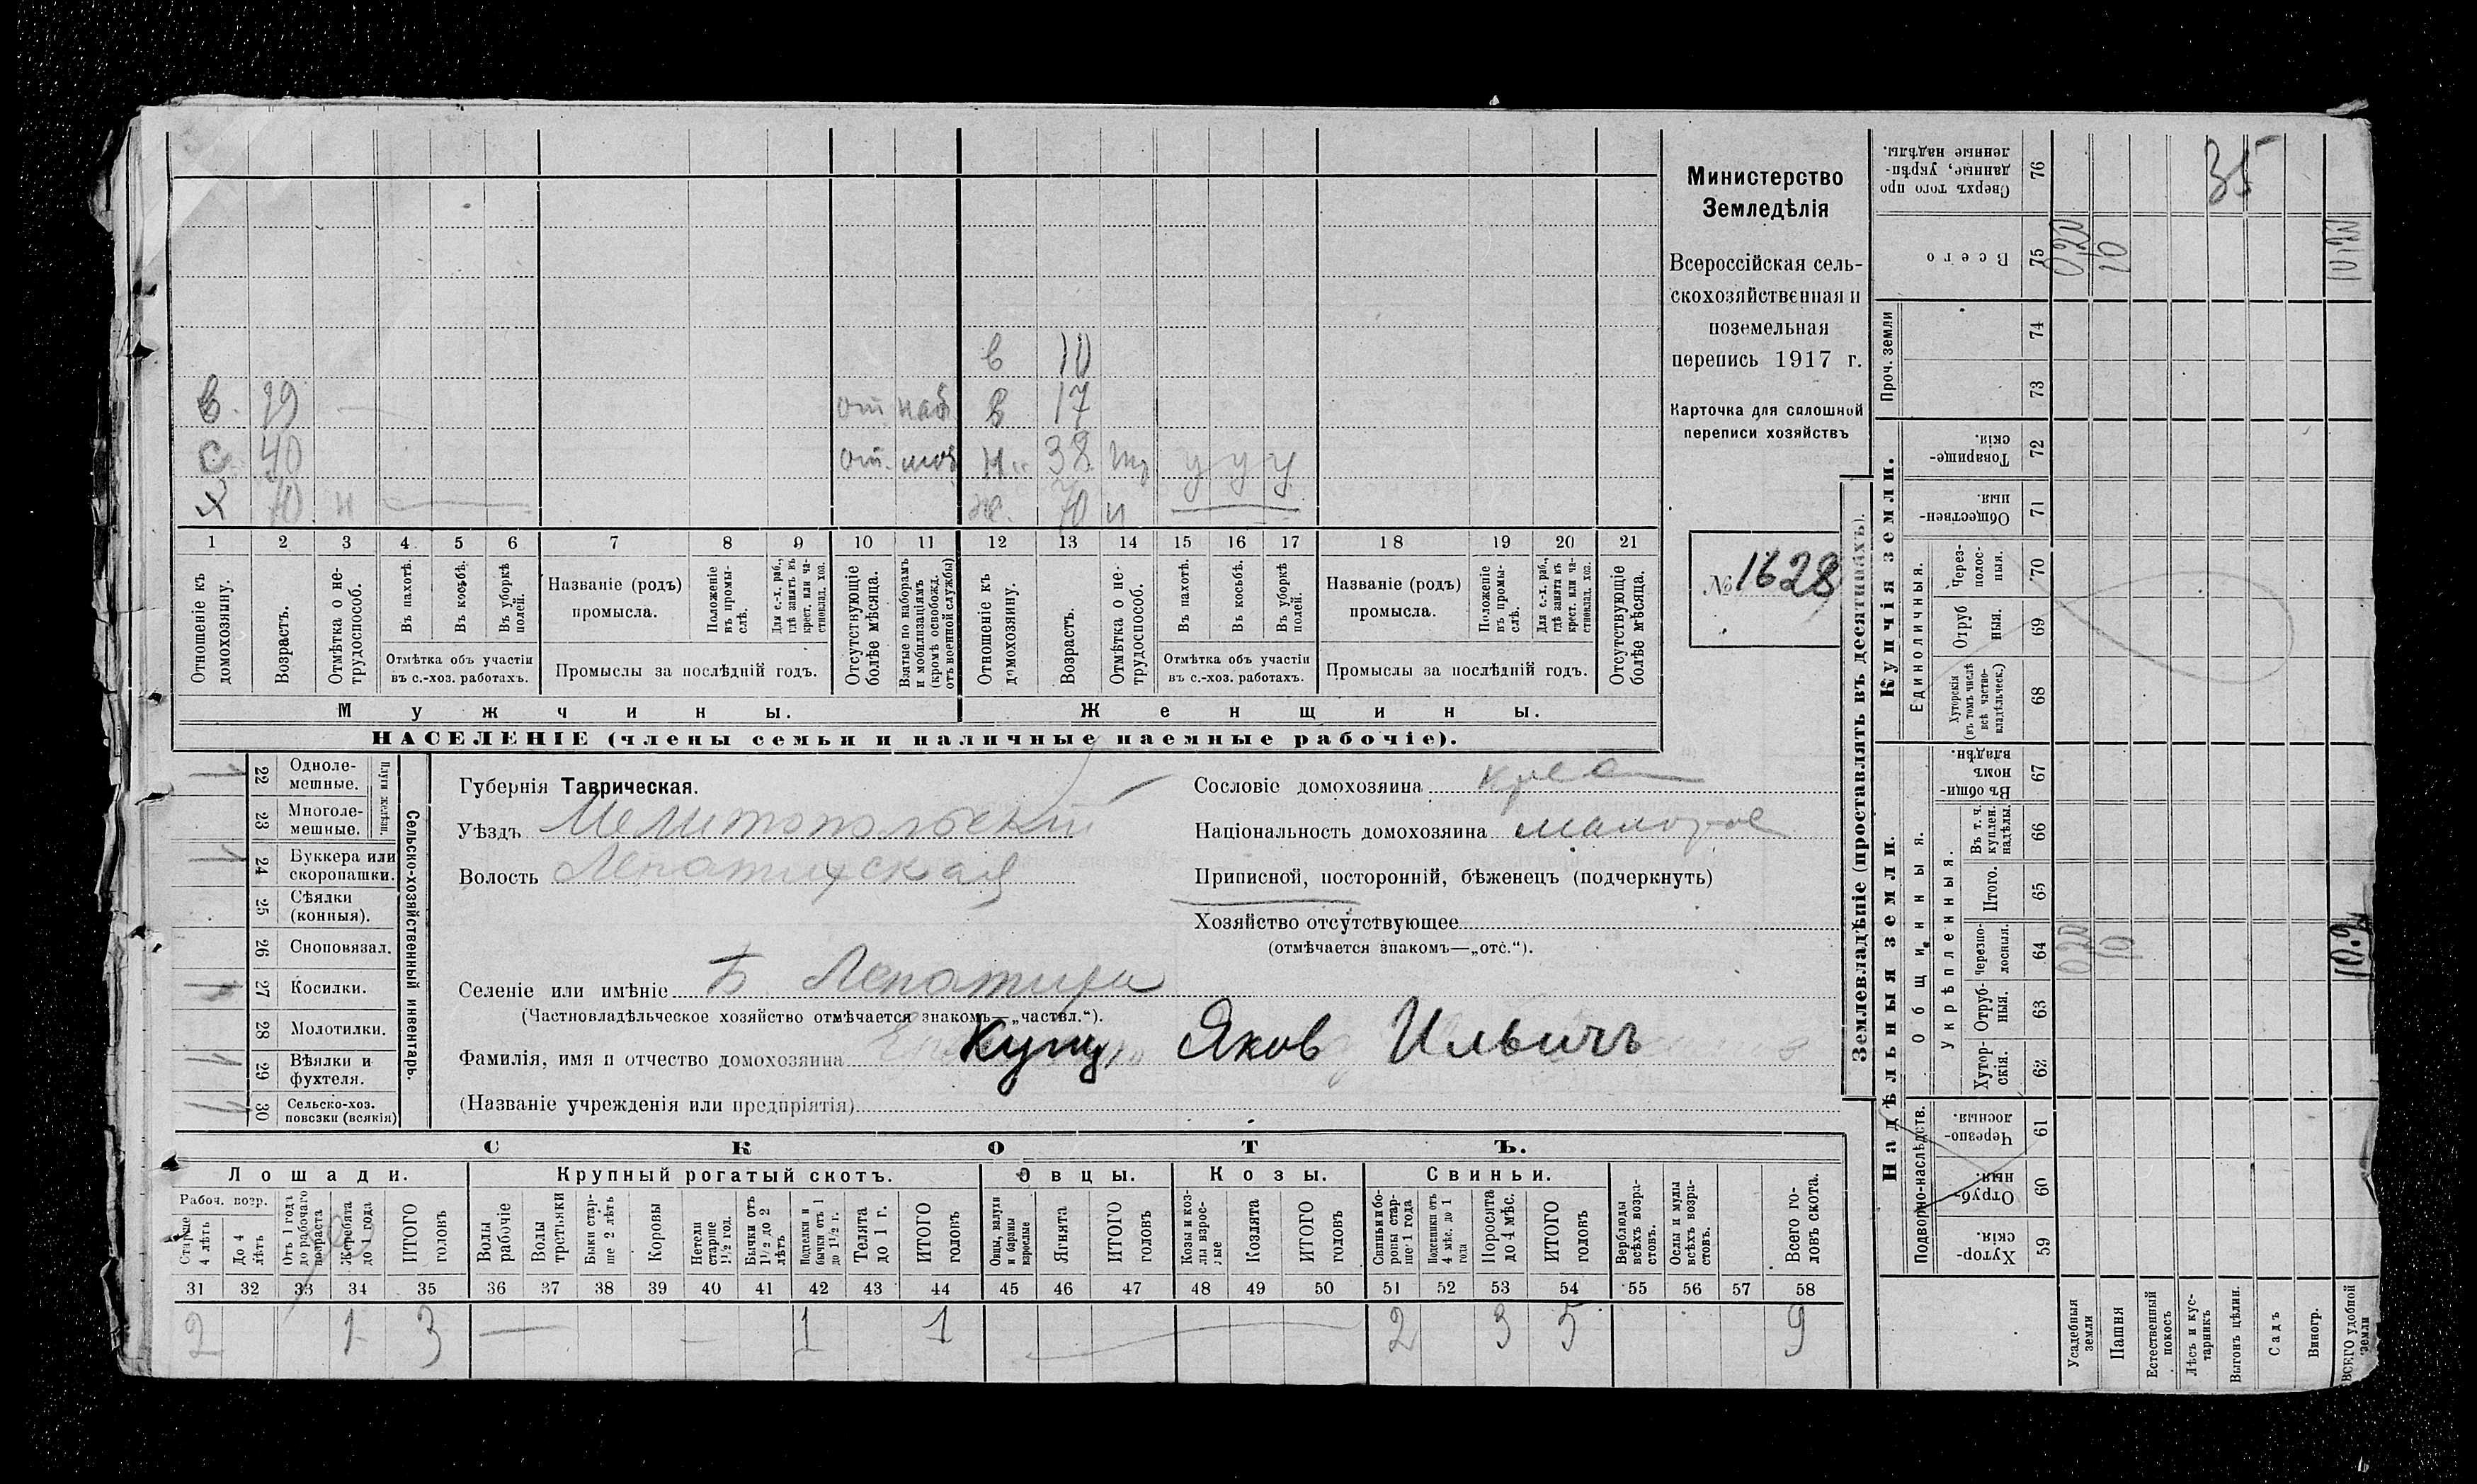 Министерство
Земледѣлія
Всероссійская сель-
скохозяйственная и
поземельная
перепись 1917 г.
Карточка для сплошной
переписи хозяйствъ
№ 1628
в 10
в. 19 — от наб в 17
с. 40 от. моб н. 38 у у у
х 70 н — ж. 70 н —
1 2 3 4 5 6 7 8 9 10 11 12 13 14 15 16 17 18 19 20 21
Отношеніе къ домохозяину.
Возрастъ.
Отмѣтка о не-трудоспособ.
Въ пахотѣ.
Въ косьбѣ.
Въ уборкѣ полей.
Отмѣтка объ участіи
въ с.-хоз. работахъ.
Названіе (родъ)
промысла.
Положеніе въ промы-слѣ.
Для с.-х. раб., гдѣ занятъ въ крест. или ча-стновлад. хоз.
Промыслы за послѣдній годъ.
Отсутствующіе болѣе мѣсяца.
Взятые по наборамъ и мобилизаціямъ (кромѣ освобожд. отъ военной службы)
Отношеніе къ домохозяину.
Возрастъ.
Отмѣтка о не-трудоспособ.
Въ пахотѣ.
Въ косьбѣ.
Въ уборкѣ полей.
Отмѣтка объ участіи
въ с.-хоз. работахъ.
Названіе (родъ)
промысла.
Положеніе въ промы-слѣ.
Для с.-х. раб., гдѣ занята въ крест. или ча-стновлад. хоз.
Промыслы за послѣдній годъ.
Отсутствующіе болѣе мѣсяца.
Мужчины.
Женщины.
НАСЕЛЕНІЕ (члены семьи и наличные наемные рабочіе).
Сельско-хозяйственный инвентарь.
Плуги желѣзн.
1 22 Одноле-мешные.
23 Многоле-мешные.
1 24 Буккера или скоропашки.
25 Сѣялки (конныя).
26 Сноповязал.
1 27 Косилки.
28 Молотилки.
29 Вѣялки и фухтеля.
30 Сельско-хоз. повозки (всякія)
Губернія Таврическая.
Уѣздъ Мелитопольскій
Волость Лепатихская
Селеніе или имѣніе Б. Лепатиха
(Частновладѣльческое хозяйство отмѣчается знакомъ—„частвл.“).
Фамилія, имя и отчество домохозяина Куц Яков Ильичъ
(Названіе учрежденія или предпріятія)
Сословіе домохозяина крес
Національность домохозяина малорос
Приписной, посторонній, бѣженецъ (подчеркнуть)
Хозяйство отсутствующее
(отмѣчается знакомъ—„отс.“).
СКОТЪ.
Лошади.
Крупный рогатый скотъ.
Овцы.
Козы.
Свиньи.
Рабоч. возр.
Старше 4 лѣтъ
До 4 лѣтъ
Отъ 1 года до рабочаго возраста
Жеребята до 1 года
ИТОГО головъ
Волы рабочіе
Волы третьяки
Быки стар-ше 2 лѣтъ
Коровы
Нетели старше 1½ год.
Бычки отъ 1½ до 2 лѣтъ
Подтелки и бычки отъ 1 до 1½ г.
Телята до 1 г.
ИТОГО головъ
Овцы, валухи и бараны взрослые
Ягнята
ИТОГО головъ
Козы и коз-лы взрос-лые
Козлята
ИТОГО головъ
Свиньи и бо-ровы стар-ше 1 года
Подсвинки отъ 4 мѣс. до 1 года
Поросята до 4 мѣс.
ИТОГО головъ
Верблюды всѣхъ возра-стовъ.
Ослы и мулы всѣхъ возра-стовъ.
Всего го-ловъ скота.
31 32 33 34 35 36 37 38 39 40 41 42 43 44 45 46 47 48 49 50 51 52 53 54 55 56 57 58
2 1 3 — — 1 1 — 2 3 5 9
Землевладѣніе (проставлять въ десятинахъ).
Надѣльныя земли.
Купчія земли.
Проч. земли
Подворно-наслѣдств.
Общинныя.
Укрѣпленныя.
Единоличныя.
Сверхъ того про данные, укрѣп-ленные надѣлы. 76 35
Всего 75 0,20 10 10,20
74
73
Товарище-скія. 72
Обществен-ныя. 71
Через-полос-ныя. 70
Отруб ныя. 69
Хуторскія (въ томъ числѣ всѣ частно-владѣльческ.) 68
Въ общи-номъ владѣн. 67
Въ т. ч. куплен. надѣлы. 66
Итого. 65
Черезпо-лосныя. 64 020 10
Отруб-ныя. 63
Хутор-скія. 62
Черезпо-лосныя. 61
Отруб-ныя. 60
Хутор-скія. 59
Усадебныя земли
Пашня
Естественный покосъ
Лѣсъ и кус-тарникъ
Выгонъ цѣлин.
Садъ
Виногр.
ВСЕГО удобной земли